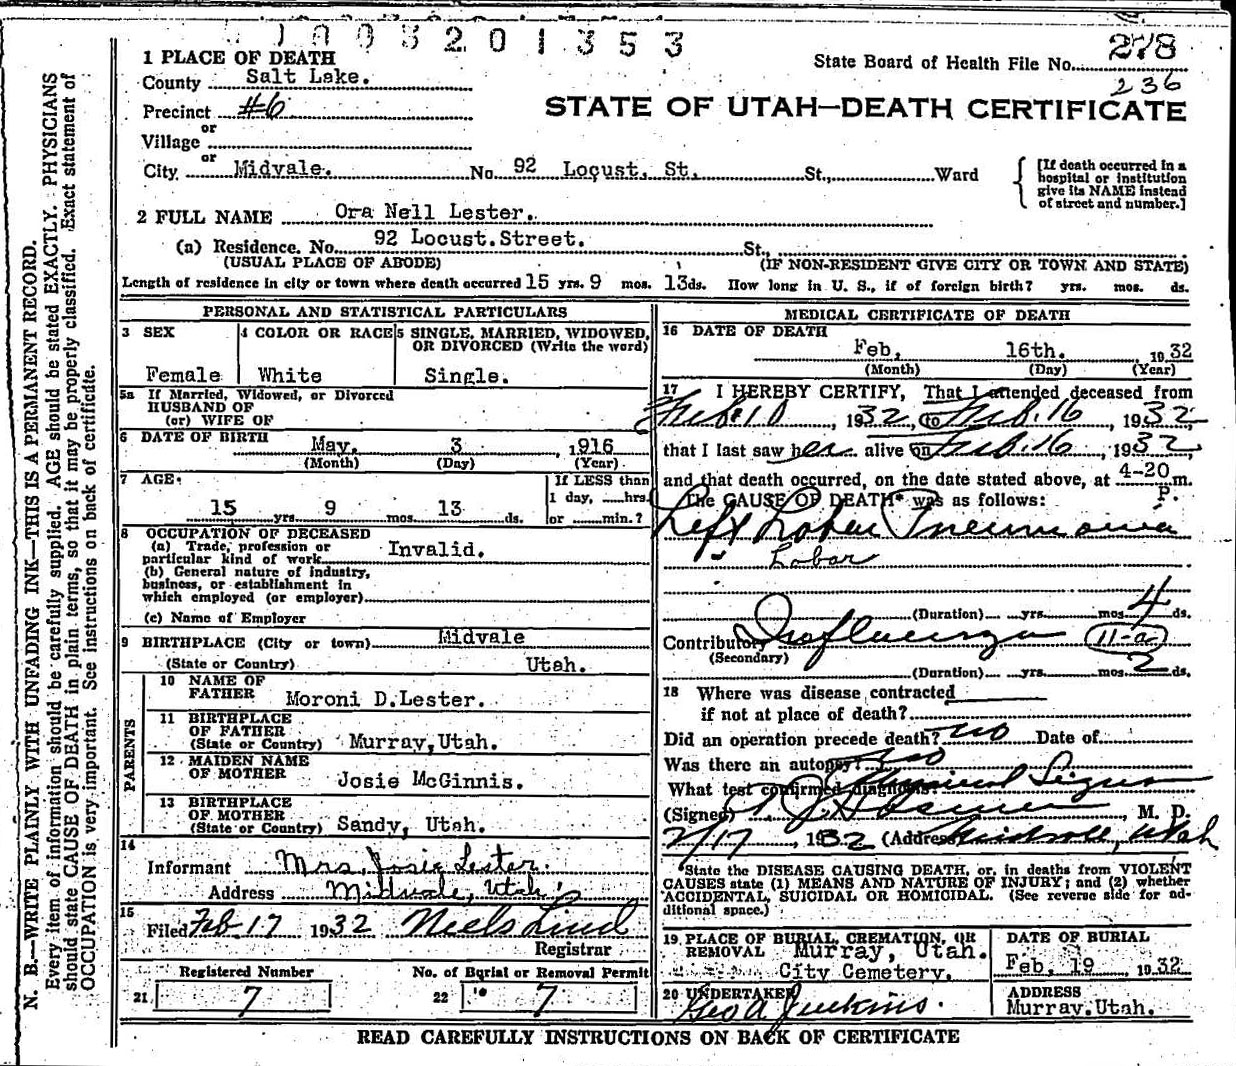 1003201353
1 PLACE OF DEATH
State Board of Health File No. 278
236
County Salt Lake.
Precinct #6
STATE OF UTAH—DEATH CERTIFICATE
or
Village
or
City Midvale. No. 92 Locust. St. St., Ward
[If death occurred in a hospital or institution give its NAME instead of street and number.]
2 FULL NAME Ora Nell Lester.
(a) Residence. No. 92 Locust.Street. St.,
(USUAL PLACE OF ABODE) (IF NON-RESIDENT GIVE CITY OR TOWN AND STATE)
Length of residence in city or town where death occurred 15 yrs. 9 mos. 13 ds. How long in U. S., if of foreign birth? yrs. mos. ds.
PERSONAL AND STATISTICAL PARTICULARS
3 SEX
Female
4 COLOR OR RACE
White
5 SINGLE, MARRIED, WIDOWED, OR DIVORCED (Write the word)
Single.
5a If Married, Widowed, or Divorced
HUSBAND OF
(or) WIFE OF
6 DATE OF BIRTH May. 3 , 1916
(Month) (Day) (Year)
7 AGE.
15 yrs. 9 mos. 13 ds.
If LESS than
1 day, hrs.
or min.?
8 OCCUPATION OF DECEASED
(a) Trade, profession or
particular kind of work Invalid.
(b) General nature of industry,
business, or establishment in
which employed (or employer)
(c) Name of Employer
9 BIRTHPLACE (City or town) Midvale
(State or Country) Utah.
PARENTS
10 NAME OF
FATHER Moroni D.Lester.
11 BIRTHPLACE
OF FATHER
(State or Country) Murray,Utah.
12 MAIDEN NAME
OF MOTHER Josie McGinnis.
13 BIRTHPLACE
OF MOTHER
(State or Country) Sandy, Utah.
14
Informant Mrs. Josie Lester.
Address Midvale, Utah
15
Filed Feb 17 1932 Niels Lind
Registrar
Registered Number
21 7
No. of Burial or Removal Permit
22 7
MEDICAL CERTIFICATE OF DEATH
16 DATE OF DEATH
Feb, 16th. , 1932
(Month) (Day) (Year)
17 I HEREBY CERTIFY, That I attended deceased from
Feb. 10 , 1932, to Feb. 16 , 1932
that I last saw her alive on Feb. 16 , 1932,
and that death occurred, on the date stated above, at 4-20 P. m.
The CAUSE OF DEATH* was as follows:
Left Lobar Pneumonia
Lobar
(Duration) yrs. mos. 4 ds.
Contributory Influenza 11-a
(Secondary)
(Duration) yrs. mos. 2 ds.
18 Where was disease contracted
if not at place of death?
Did an operation precede death? no Date of
Was there an autopsy? no
What test confirmed diagnosis? Clinical Signs
(Signed) , M. D.
2/17 , 1932 (Address) Midvale, Utah
*State the DISEASE CAUSING DEATH, or, in deaths from VIOLENT
CAUSES state (1) MEANS AND NATURE OF INJURY; and (2) whether
ACCIDENTAL, SUICIDAL OR HOMICIDAL. (See reverse side for additional space.)
19 PLACE OF BURIAL, CREMATION, OR
REMOVAL Murray, Utah.
City Cemetery.
DATE OF BURIAL
Feb, 19 , 1932
20 UNDERTAKER
Geo A Jenkins.
ADDRESS
Murray.Utah.
READ CAREFULLY INSTRUCTIONS ON BACK OF CERTIFICATE
N. B.—WRITE PLAINLY WITH UNFADING INK—THIS IS A PERMANENT RECORD.
Every item of information should be carefully supplied. AGE should be stated EXACTLY. PHYSICIANS
should state CAUSE OF DEATH in plain terms, so that it may be properly classified. Exact statement of
OCCUPATION is very important. See instructions on back of certificate.